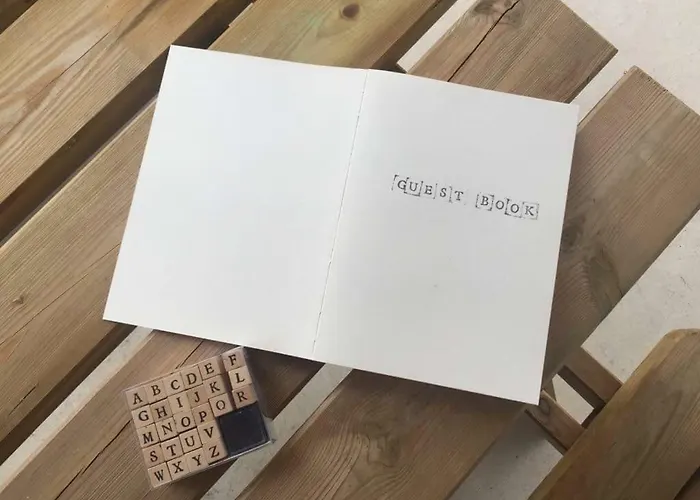 GUEST BOOK
A B C D E F
G H I J K L
M N O P O R
S T U V
W X Y Z